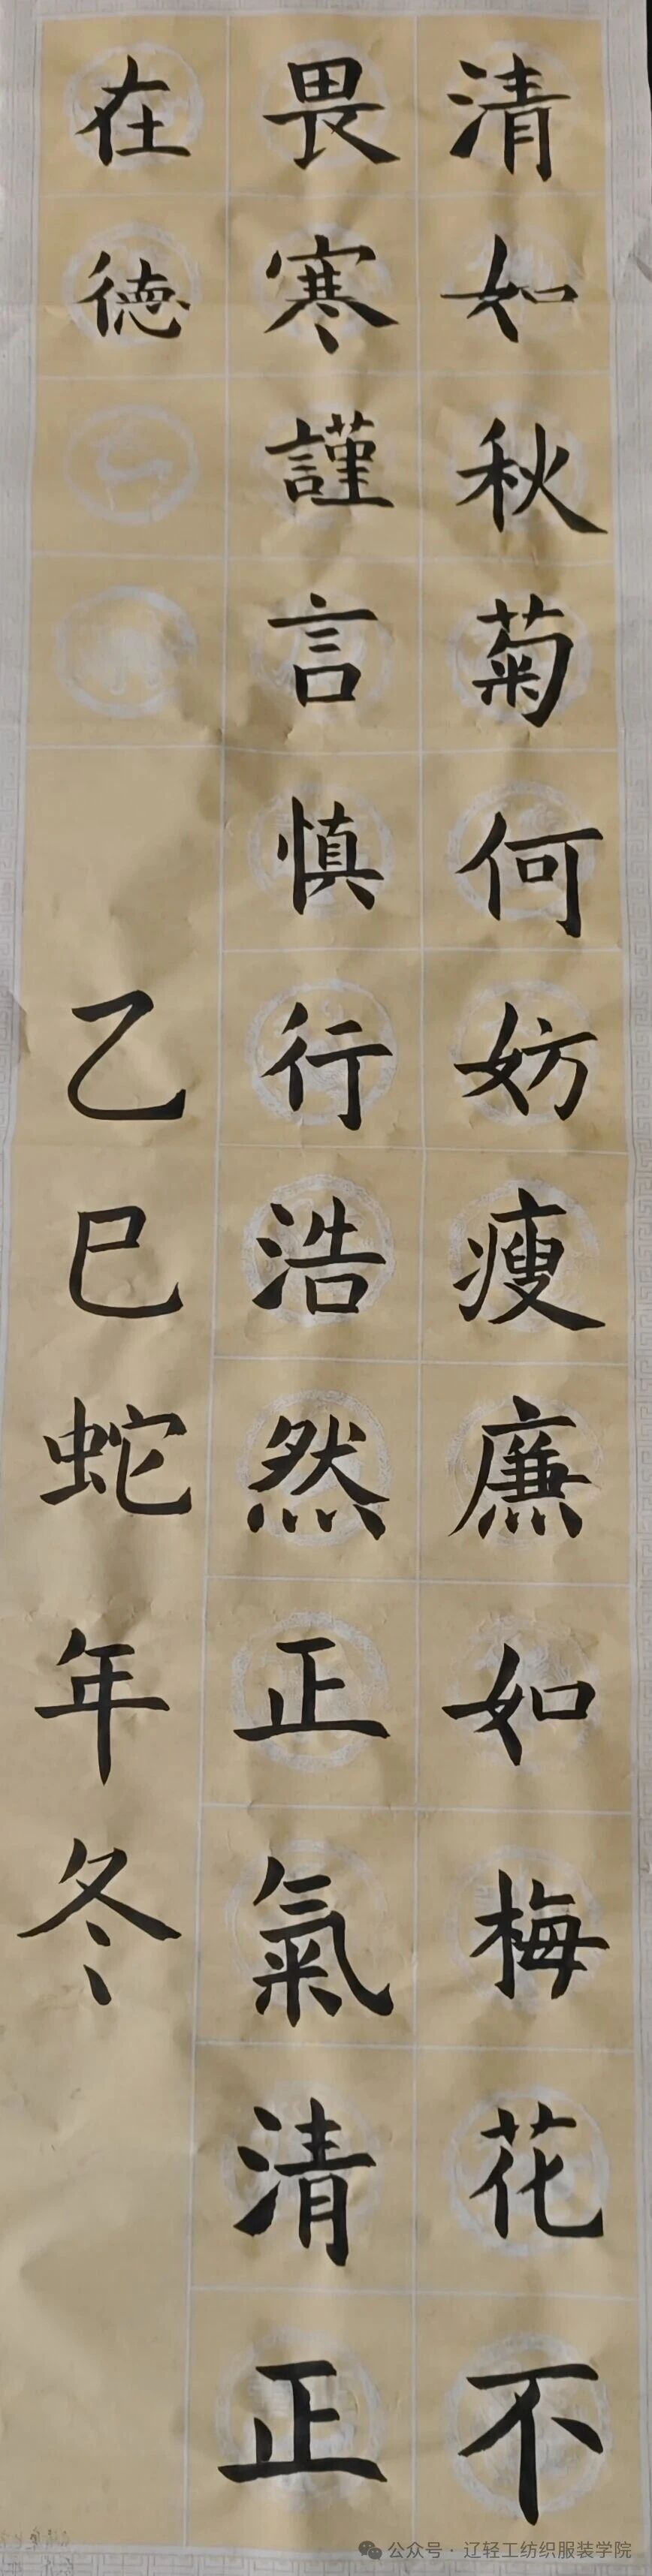 清如秋菊何妨瘦廉如梅花不
畏寒謹言慎行浩然正氣清正
在德
乙巳蛇年冬
公众号 · 辽轻工纺织服装学院